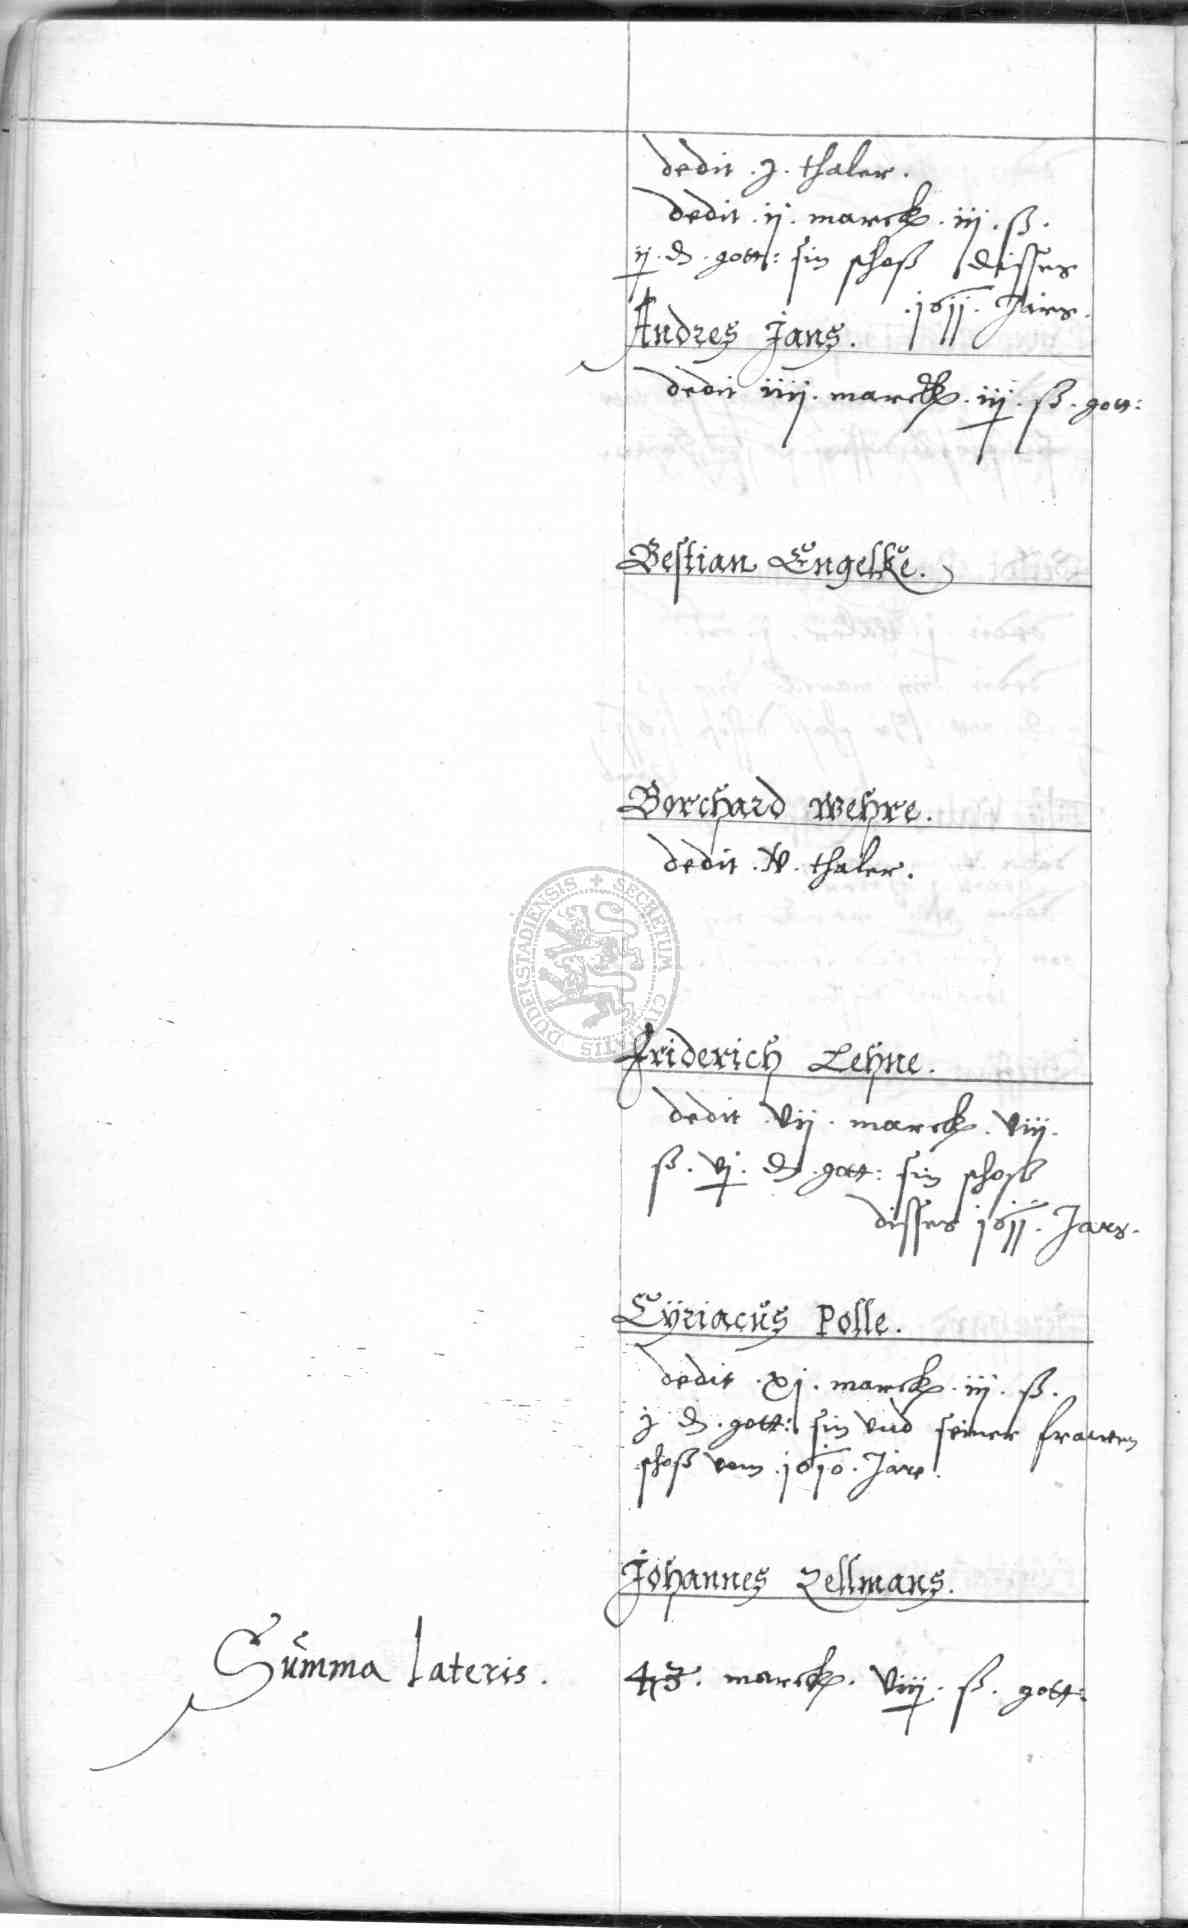 dedit . j . thaler .
dedit . ij . marck . iij . ß .
ij . d . gott : sin schoß disses
. 1611 . Jars .
Andres Jans .
dedit iiij . marck . iij . ß . gott :
Bestian Engelke .
Borchard Wehre .
dedit . iv . thaler .
DUDERSTADIENSIS + SECRETUM CIVITATIS
Friderich Lehne .
dedit . vij . marck . viij .
ß . vj . d . gott : sin schoß
disses 1611 . Jars .
Cÿriacus Polle .
dedit . xj . marck . iij . ß .
j d . gott : sin vnd seiner frawen
schoß vom . 1610 . Jare .
Johannes Zellmans .
Summa lateris . 43 . marck . viij . ß . gott :